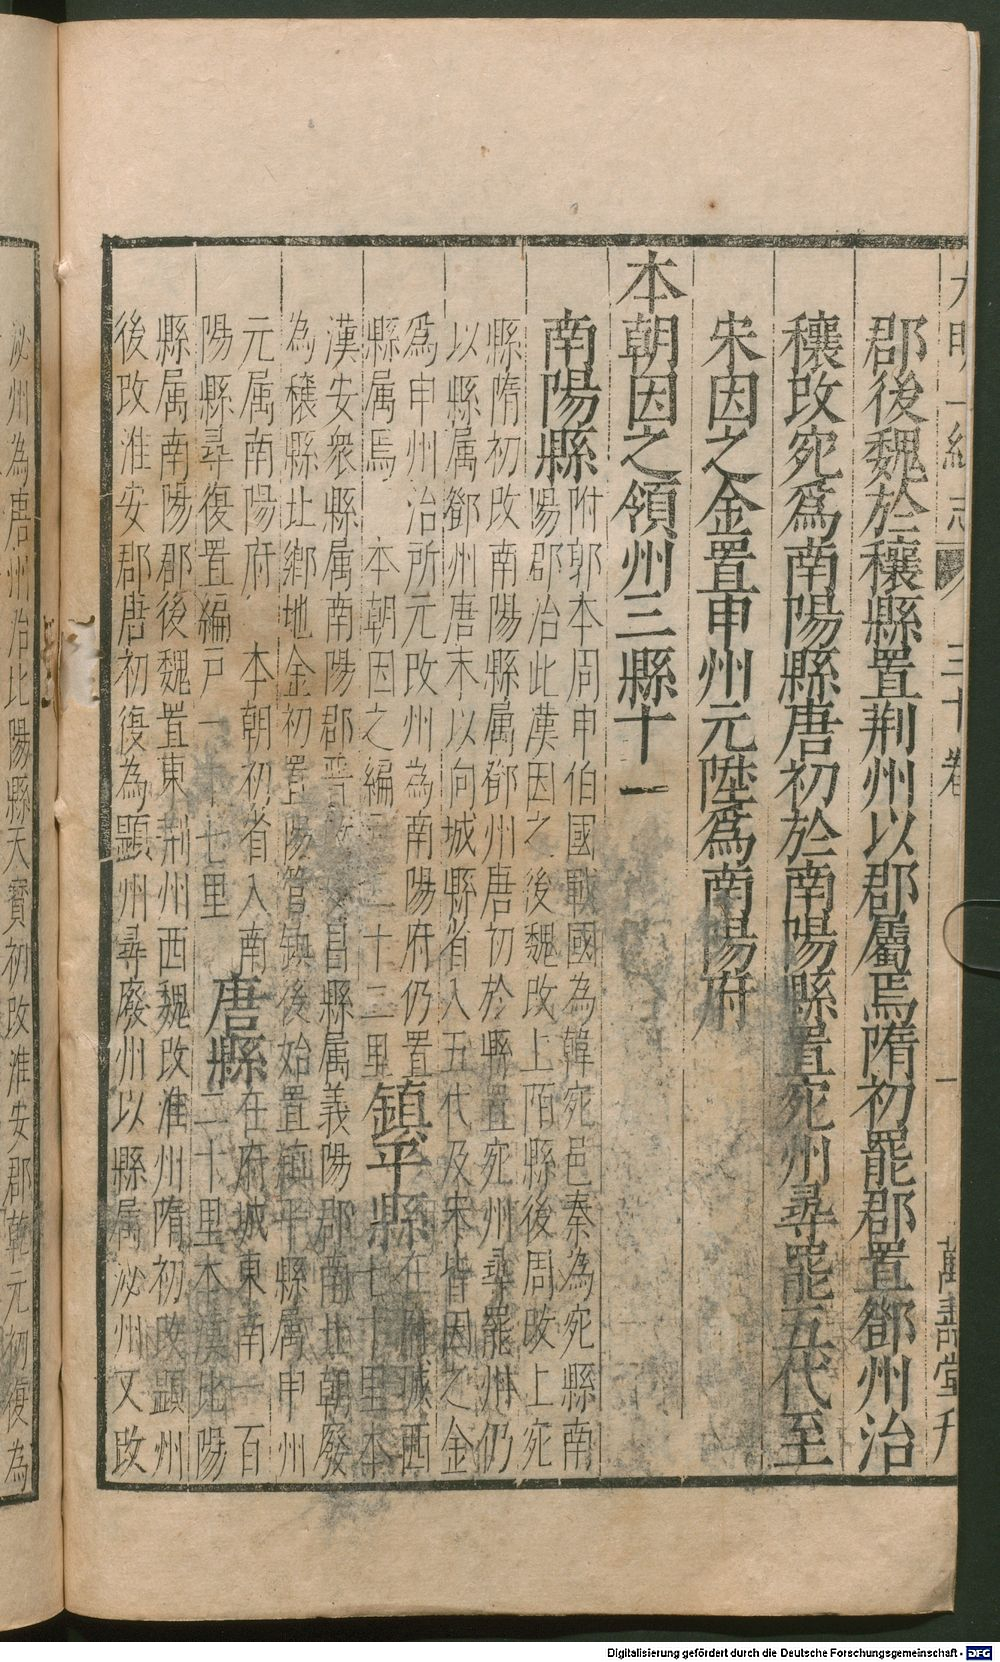 大明一統志 三十卷 一 萬壽堂刊
郡後魏於穰縣置荆州以郡屬焉隋初罷郡置鄧州治
穰改宛爲南陽縣唐初於南陽縣置宛州尋罷五代至
宋因之金置申州元陞爲南陽府
本朝因之領州三縣十一
南陽縣
附郭本周申伯國戰國為韓宛邑秦為宛縣南
陽郡治此漢因之後魏改上陌縣後周改上宛
縣隋初改南陽縣属鄧州唐初於縣置宛州尋罷州仍
以縣属鄧州唐末以向城縣省入五代及宋皆因之金
爲申州治所元改州為南陽府仍置
縣属焉 本朝因之編二十二里 鎮平縣 在府城西七十里本
漢安衆縣属南陽郡晉昌縣属義陽郡南北朝廢
為穰縣北鄉地金初置陽管鎮後始置鎮平縣属申州
元属南陽府 本朝初省入南
陽縣尋復置編戸一十七里 唐縣 在府城東南一百二十里本漢比陽
縣属南陽郡後魏置東荆州西魏改淮州隋初改顯州
後改淮安郡唐初復為顯州尋廢州以縣属泌州又改
泌州為唐州治比陽縣天寳初改淮安郡乾元初復為
Digitalisierung gefördert durch die Deutsche Forschungsgemeinschaft - DFG